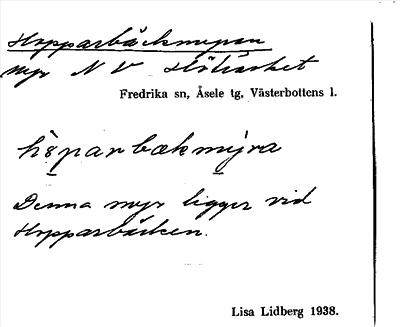 Hopparbäckmyran
myr N V Holträsket
Fredrika sn, Åsele tg, Västerbottens l.
Denna myr ligger vid
Hopparbäcken.
Lisa Lidberg 1938.